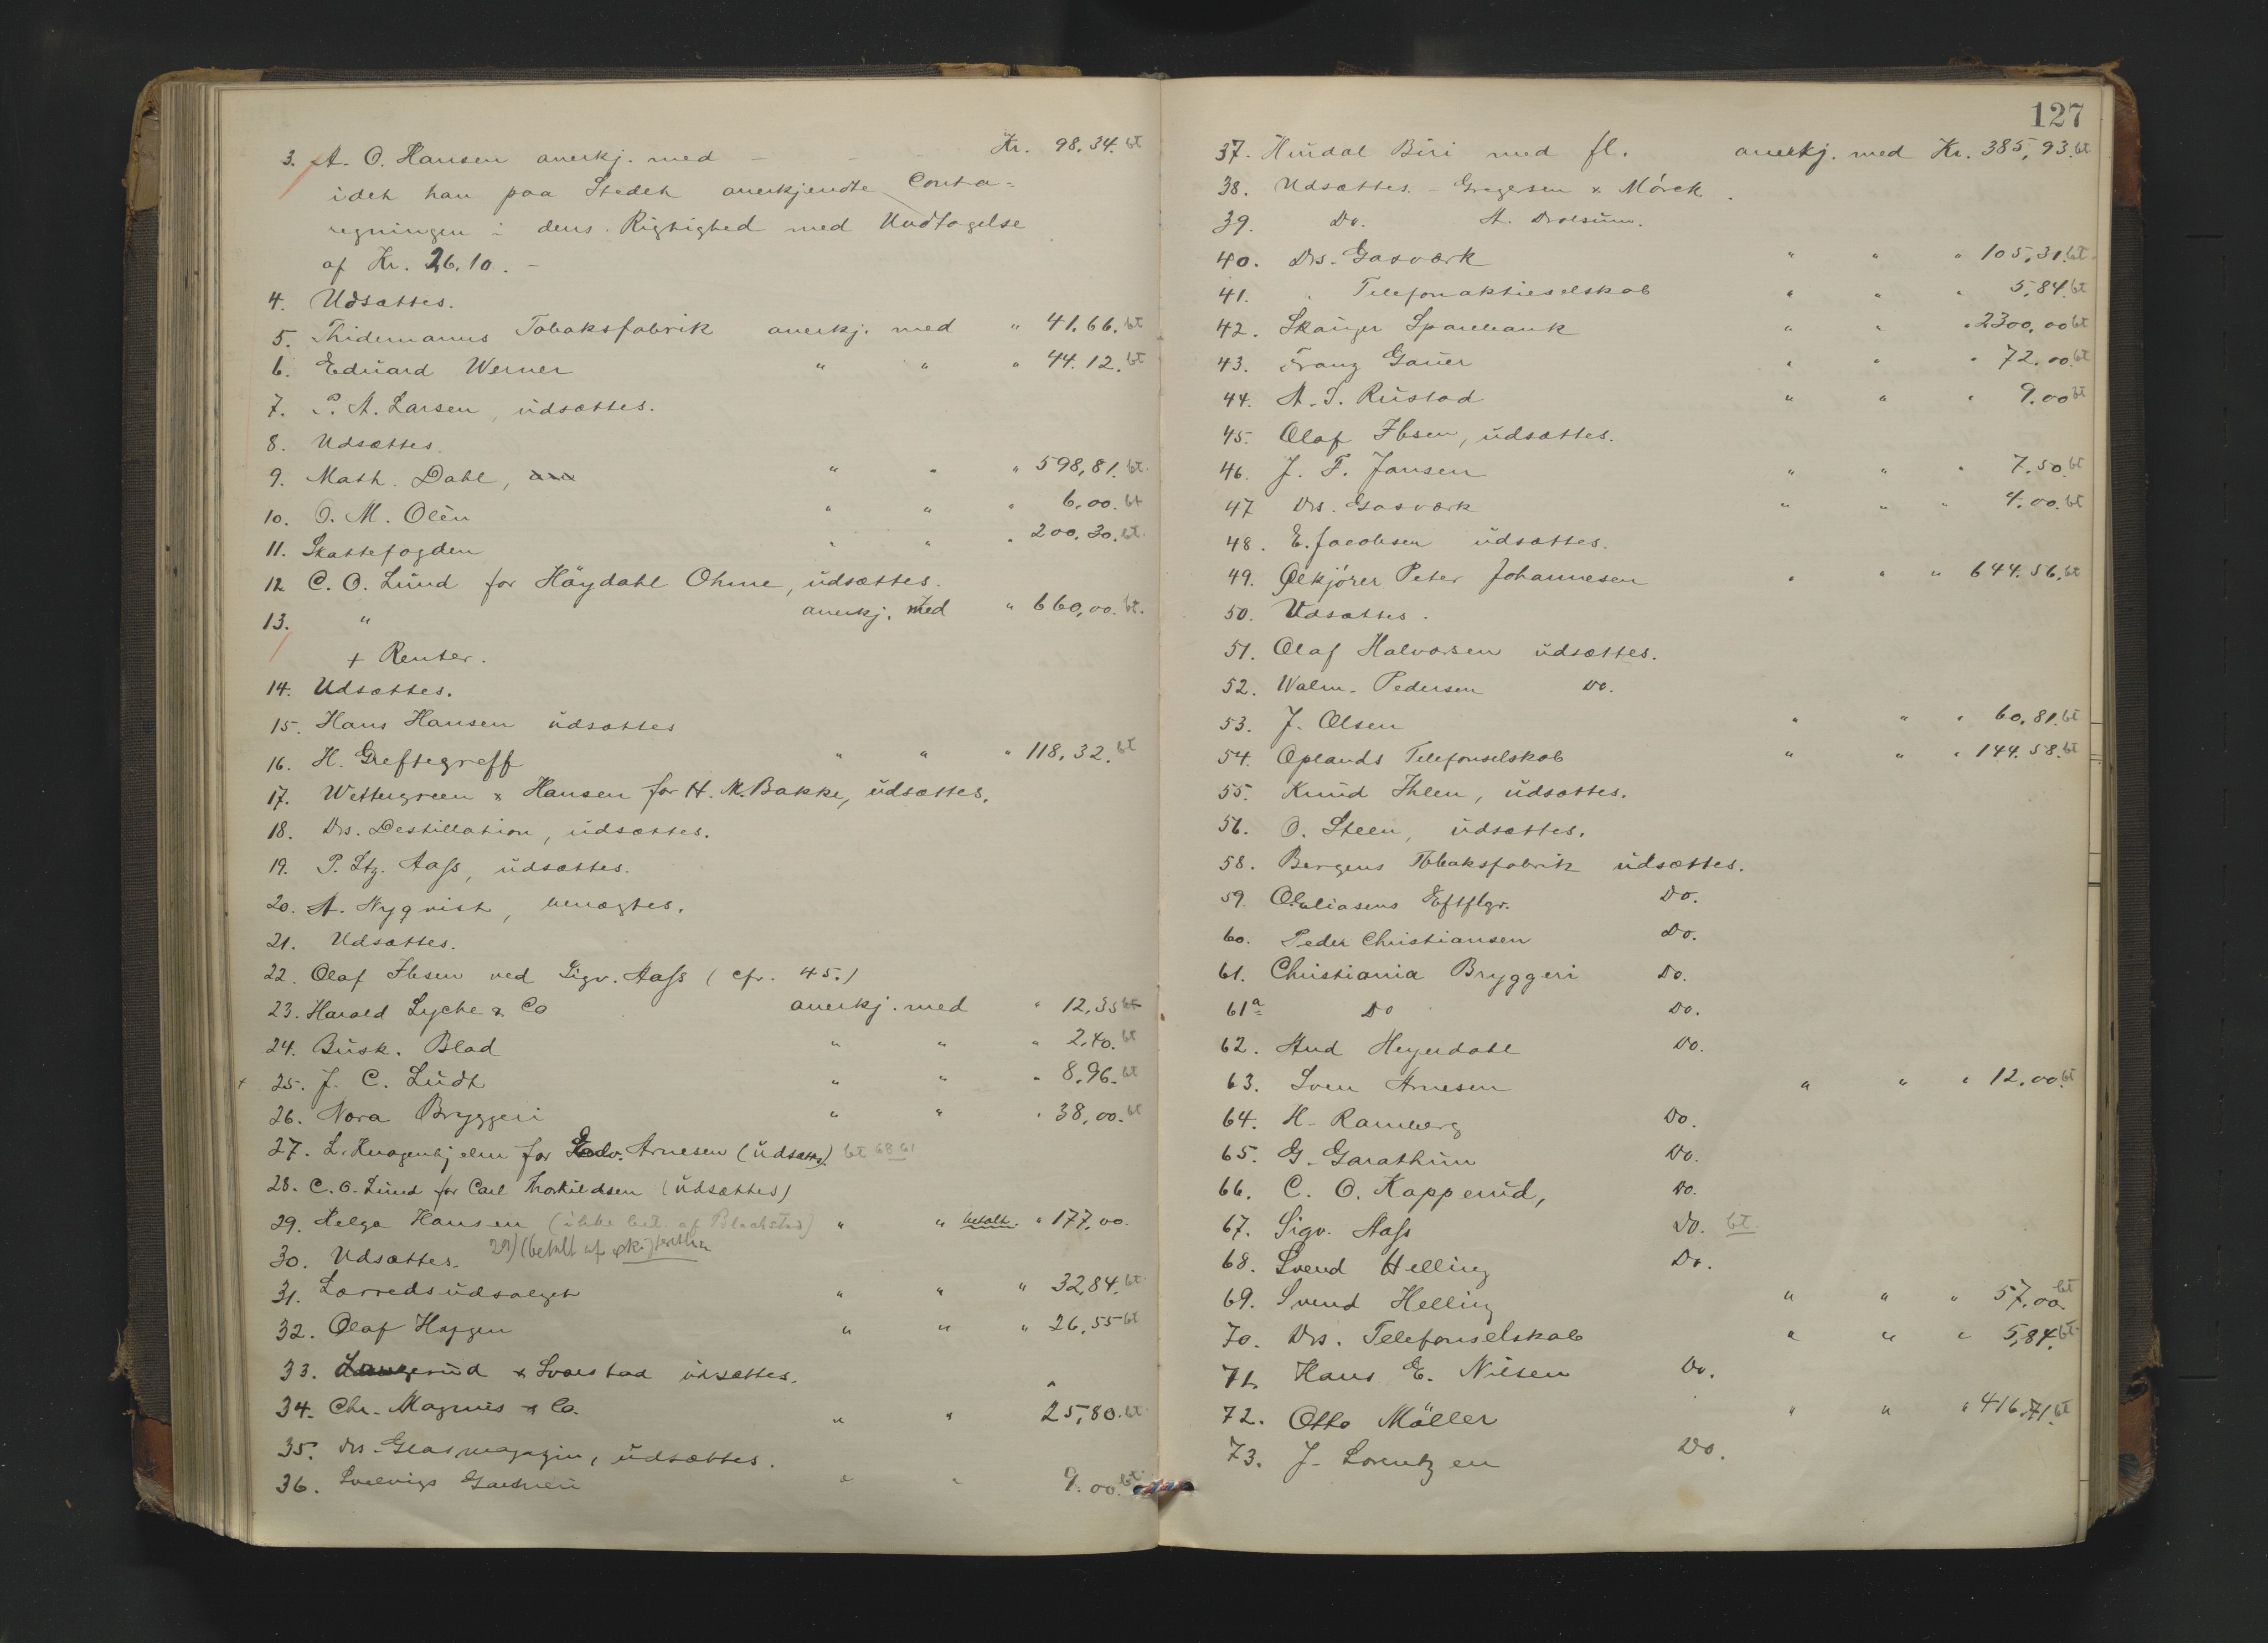 3. A. O. Hansen anerkj. med - - - Kr. 98,34. bt
idet han paa Stedet anerkjendte Contra=
regningen i dens Rigtighed med Undtagelse
af Kr. 26.10. -
4. Udsættes.
5. Thidemanns Tobaksfabrik anerkj. med " 41.66. bt
6. Eduard Werner " " " 44.12. bt
7. P. A. Larsen, udsættes.
8. Udsættes.
9. Math. Dahl, " " " 598,81. bt.
10. O. M. Olén " " " 6,00. bt
11. Skattefogden " " " 200,30. bt.
12. C. O. Lund for Höydahl Ohme, udsættes.
13. " anerkj. med " 660,00. bt.
+ Renter.
14. Udsættes.
15. Hans Hansen udsættes
16. H. Greftegreff " " " 118,32. bt
17. Wettergreen & Hansen for H. M. Bakke, udsættes.
18. Drs. Destillation, udsættes.
19. P. Ltz. Aass, udsættes.
20. A. Nyqvist, benægtes.
21. Udsættes.
22. Olaf Ibsen ved Sigv. Aass (cfr. 45.)
23. Harald Lyche & Co anerkj. med " 12,35 bt
24. Busk. Blad " " " 2,40. bt
25. J. C. Ludt " " " 8,96. bt
26. Nora Bryggeri " " " 38,00. bt
27. L. Knagenhjelm for Edv. Arnesen (udsættes). bt 68 61
28. C. O. Lund for Carl Thorkildsen (udsættes)
29. Helga Hansen (ikke bet. af Blakstad) " " betalt. " 177,00.
29) (betalt af
30. Udsættes.
31. Lærredsudsalget " " " 32,84. bt
32. Olaf Haagen " " " 26,55 bt
33. & Svarstad udsættes.
34. Chr. Magnus & Co. " " 25,80. bt
35. Drs. Glasmagazin, udsættes.
36. Svelvigs Garveri " " 9.00. bt
127
37. Hundal Biri med fl. anerkj. med Kr. 385,93. bt
38. Udsættes. - Gregersen & Mörck.
39. Do. A. Drolsum.
40. Drs. Gasværk " " " 105,31. bt.
41. " Telefonaktieselskab " " " 5,84. bt
42. Skauger Sparebank " " " 2300,00 bt
43. Franz Gauer " " " 72.00. bt
44. A. S. Rustad " " " 9.00 bt
45. Olaf Ibsen, udsættes.
46. J. F. Jansen " " " 7.50. bt
47 Drs. Gasværk " " " 4,00. bt
48. E. Jacobsen udsættes.
49. Ølkjörer Peter Johannesen " " " 644.56. bt
50. Udsættes.
51. Olaf Halvorsen udsættes.
52. Walm. Pedersen Do.
53. J. Olsen " " " 60,81. bt
54. Oplands Telefonselskab " " " 144.58. bt
55. Knud Ihlen, udsættes.
56. O. Steen, udsættes.
58. Bergens Tobaksfabrik udsættes.
59. O. Eliasens Eftflgr. Do.
60. Peder Christiansen Do.
61. Christiania Bryggeri Do.
61a Do Do.
62. And Heyerdahl Do.
63. Sven Arnesen " " " 12,00. bt
64. H. Ramberg Do.
65. G. Garathun Do.
66. C. O. Kapperud, Do.
67. Sigv. Aass Do. bt.
68. Svend Helling Do.
69. Svend Helling " " " 57,00. bt
70. Drs. Telefonselskab " " " 5,84. bt
71. Hans E. Nilsen Do.
72. Otto Möller " " " 416,71. bt
73. J. Lorentzen Do.